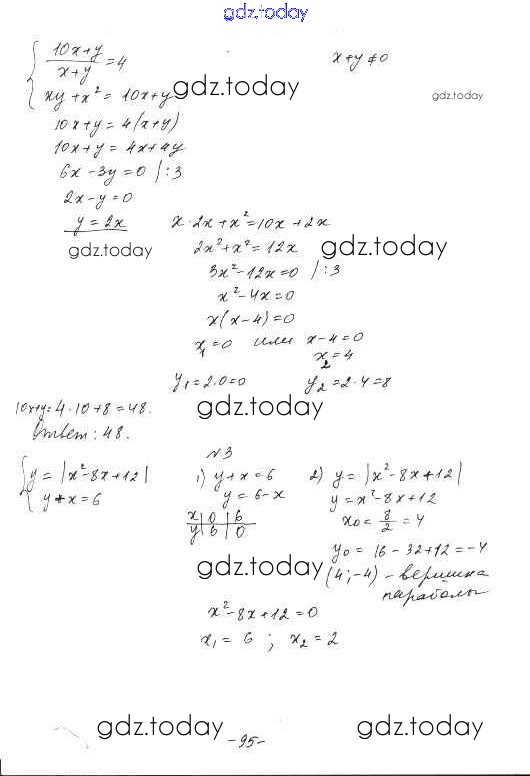 gdz.today
{ (10x+y)/(x+y) = 4      x+y≠0
{ xy+x² = 10x+y gdz.today gdz.today
10x+y = 4(x+y)
10x+y = 4x+4y
6x-3y=0 |:3
2x-y=0
y=2x      x·2x+x²=10x+2x
gdz.today 2x²+x²=12x gdz.today
3x²-12x=0 |:3
x²-4x=0
x(x-4)=0
x₁=0 или x-4=0
x₂=4
y₁=2·0=0      y₂=2·4=8
10x+y=4·10+8=48. gdz.today
Ответ: 48.
N3
{ y=|x²-8x+12|      1) y+x=6      2) y=|x²-8x+12|
{ y+x=6      y=6-x      y=x²-8x+12
x|0|6      x₀=8/2=4
y|6|0
y₀=16-32+12=-4
gdz.today (4;-4) - вершина
параболы
x²-8x+12=0
x₁=6; x₂=2
gdz.today -95- gdz.today